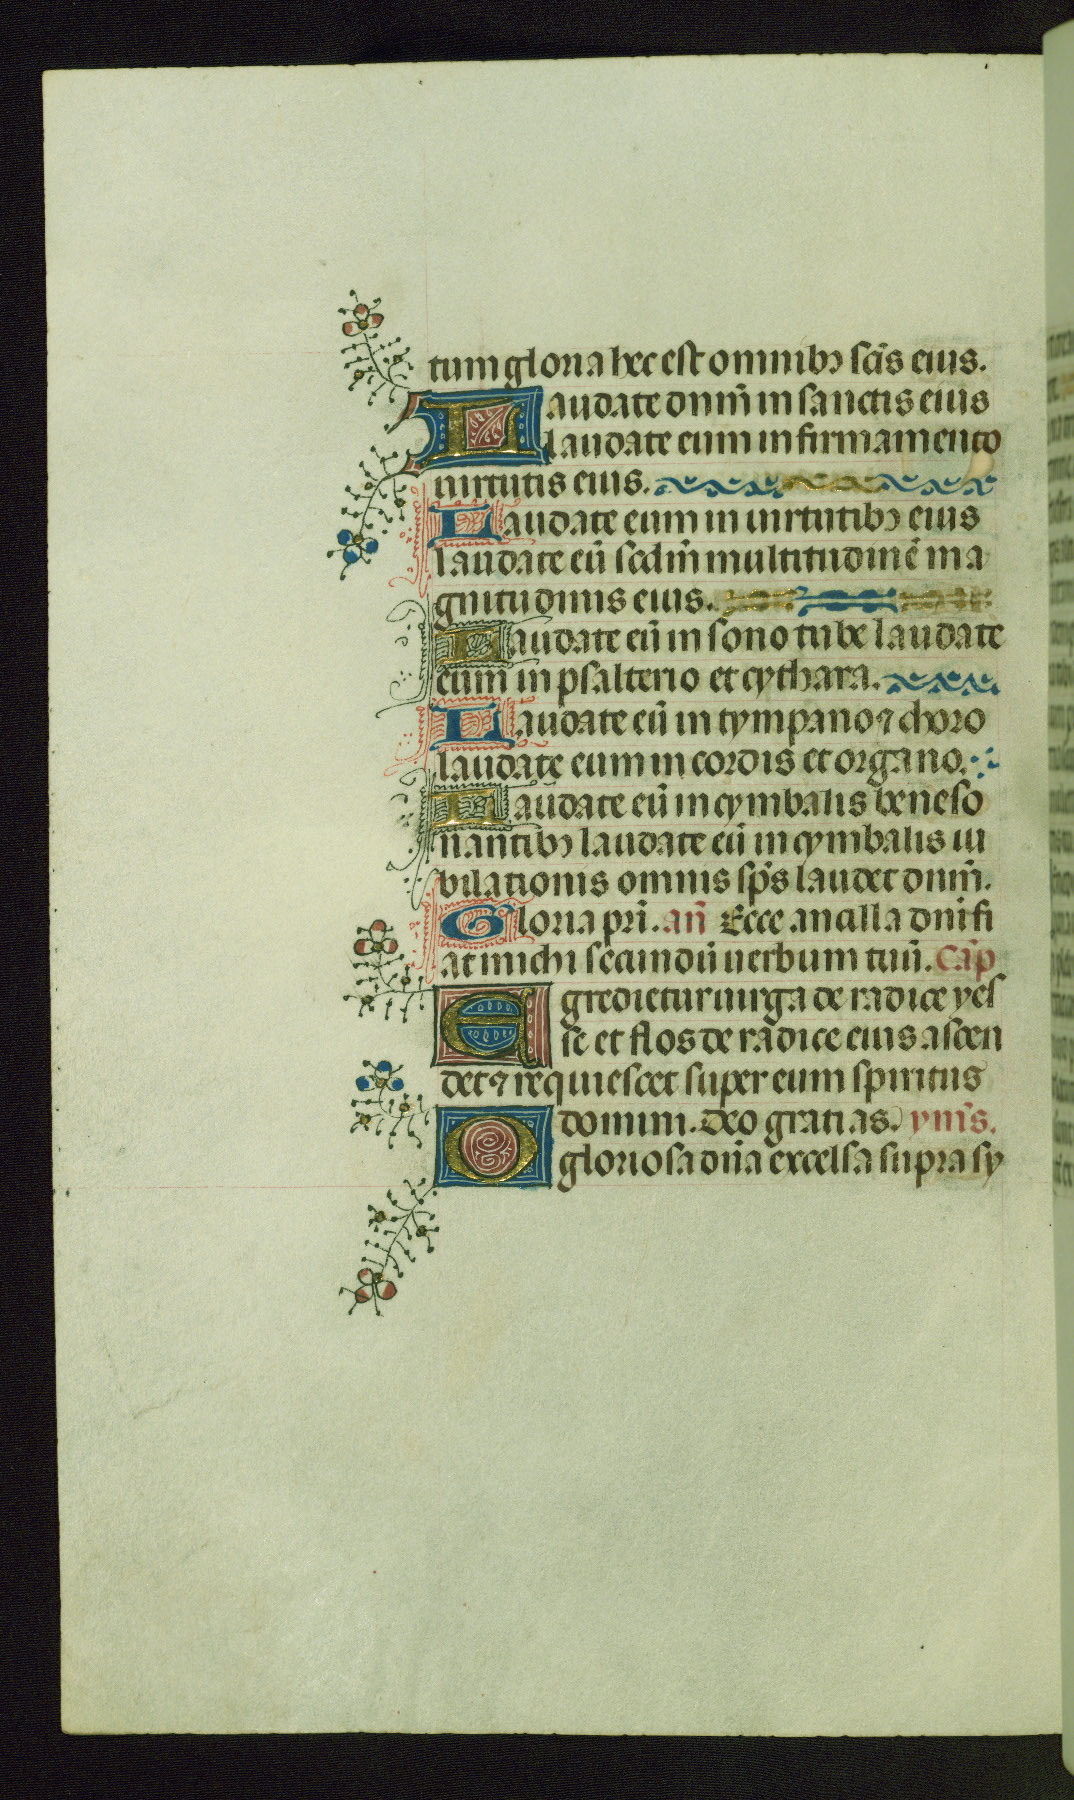 tum gloria hec est omnibꝫ sc̄is eius.
Laudate dnm̄ in sanctis eius
laudate eum in firmamento
uirtutis eius.
Laudate eum in uirtutibꝫ eius
laudate eū sedm̄ multitudinē ma
gnitudinis eius.
Laudate eū in sono tube laudate
eum in psalterio et cythara.
Laudate eū in tympano ⁊ choro
laudate eum in cordis et organo.
Laudate eū in cymbalis beneso
nantibꝫ laudate eū in cymbalis iu
bilationis omnis sp̄s laudet dnm̄.
Gloria pr̄i. an̄ Ecce ancilla dn̄i fi
at michi secundū uerbum tuū. Cap̄
Egredietur uirga de radice yes
se et flos de radice eius ascen
det ⁊ requiescet super eum spiritus
domini. Deo gratias. ym̄s.
O gloriosa dn̄a excelsa supra sy